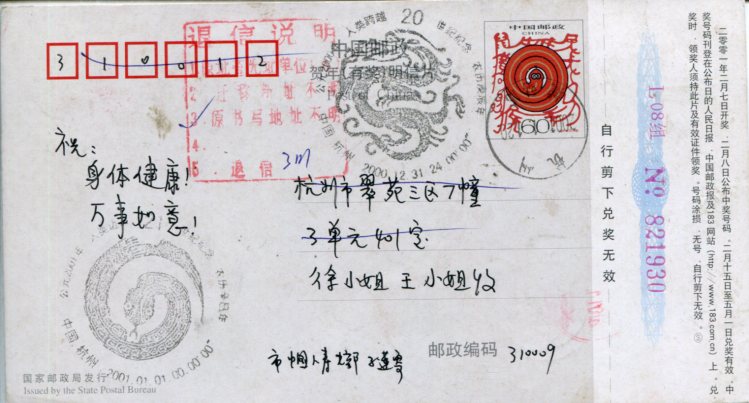 310012
中国邮政
CHINA
60
中国邮政
贺年(有奖)明信片
人类跨越20世纪纪念
农历庚辰年
中国 杭州
2000.12.31 24:00:00"
退信说明
5. 退信
祝:
身体健康!
万事如意!
杭州市翠苑三区7幢
3单元401室
徐小姐 王小姐收
农历庚辰年
中国 杭州
2001.01.01 00:00:00"
邮政编码 310009
国家邮政局发行
Issued by the State Postal Bureau
自行剪下兑奖无效
1-08组 No 821930
二〇〇一年二月七日开奖,二月八日公布中奖号码,二月十五日至五月一日兑奖有效。中
奖号码刊登在公布日的人民日报、中国邮政报及183网站(http://www.183.com.cn)上。兑
奖时,领奖人须持此片及有效证件领奖。号码涂损、无号、自行剪下无效。